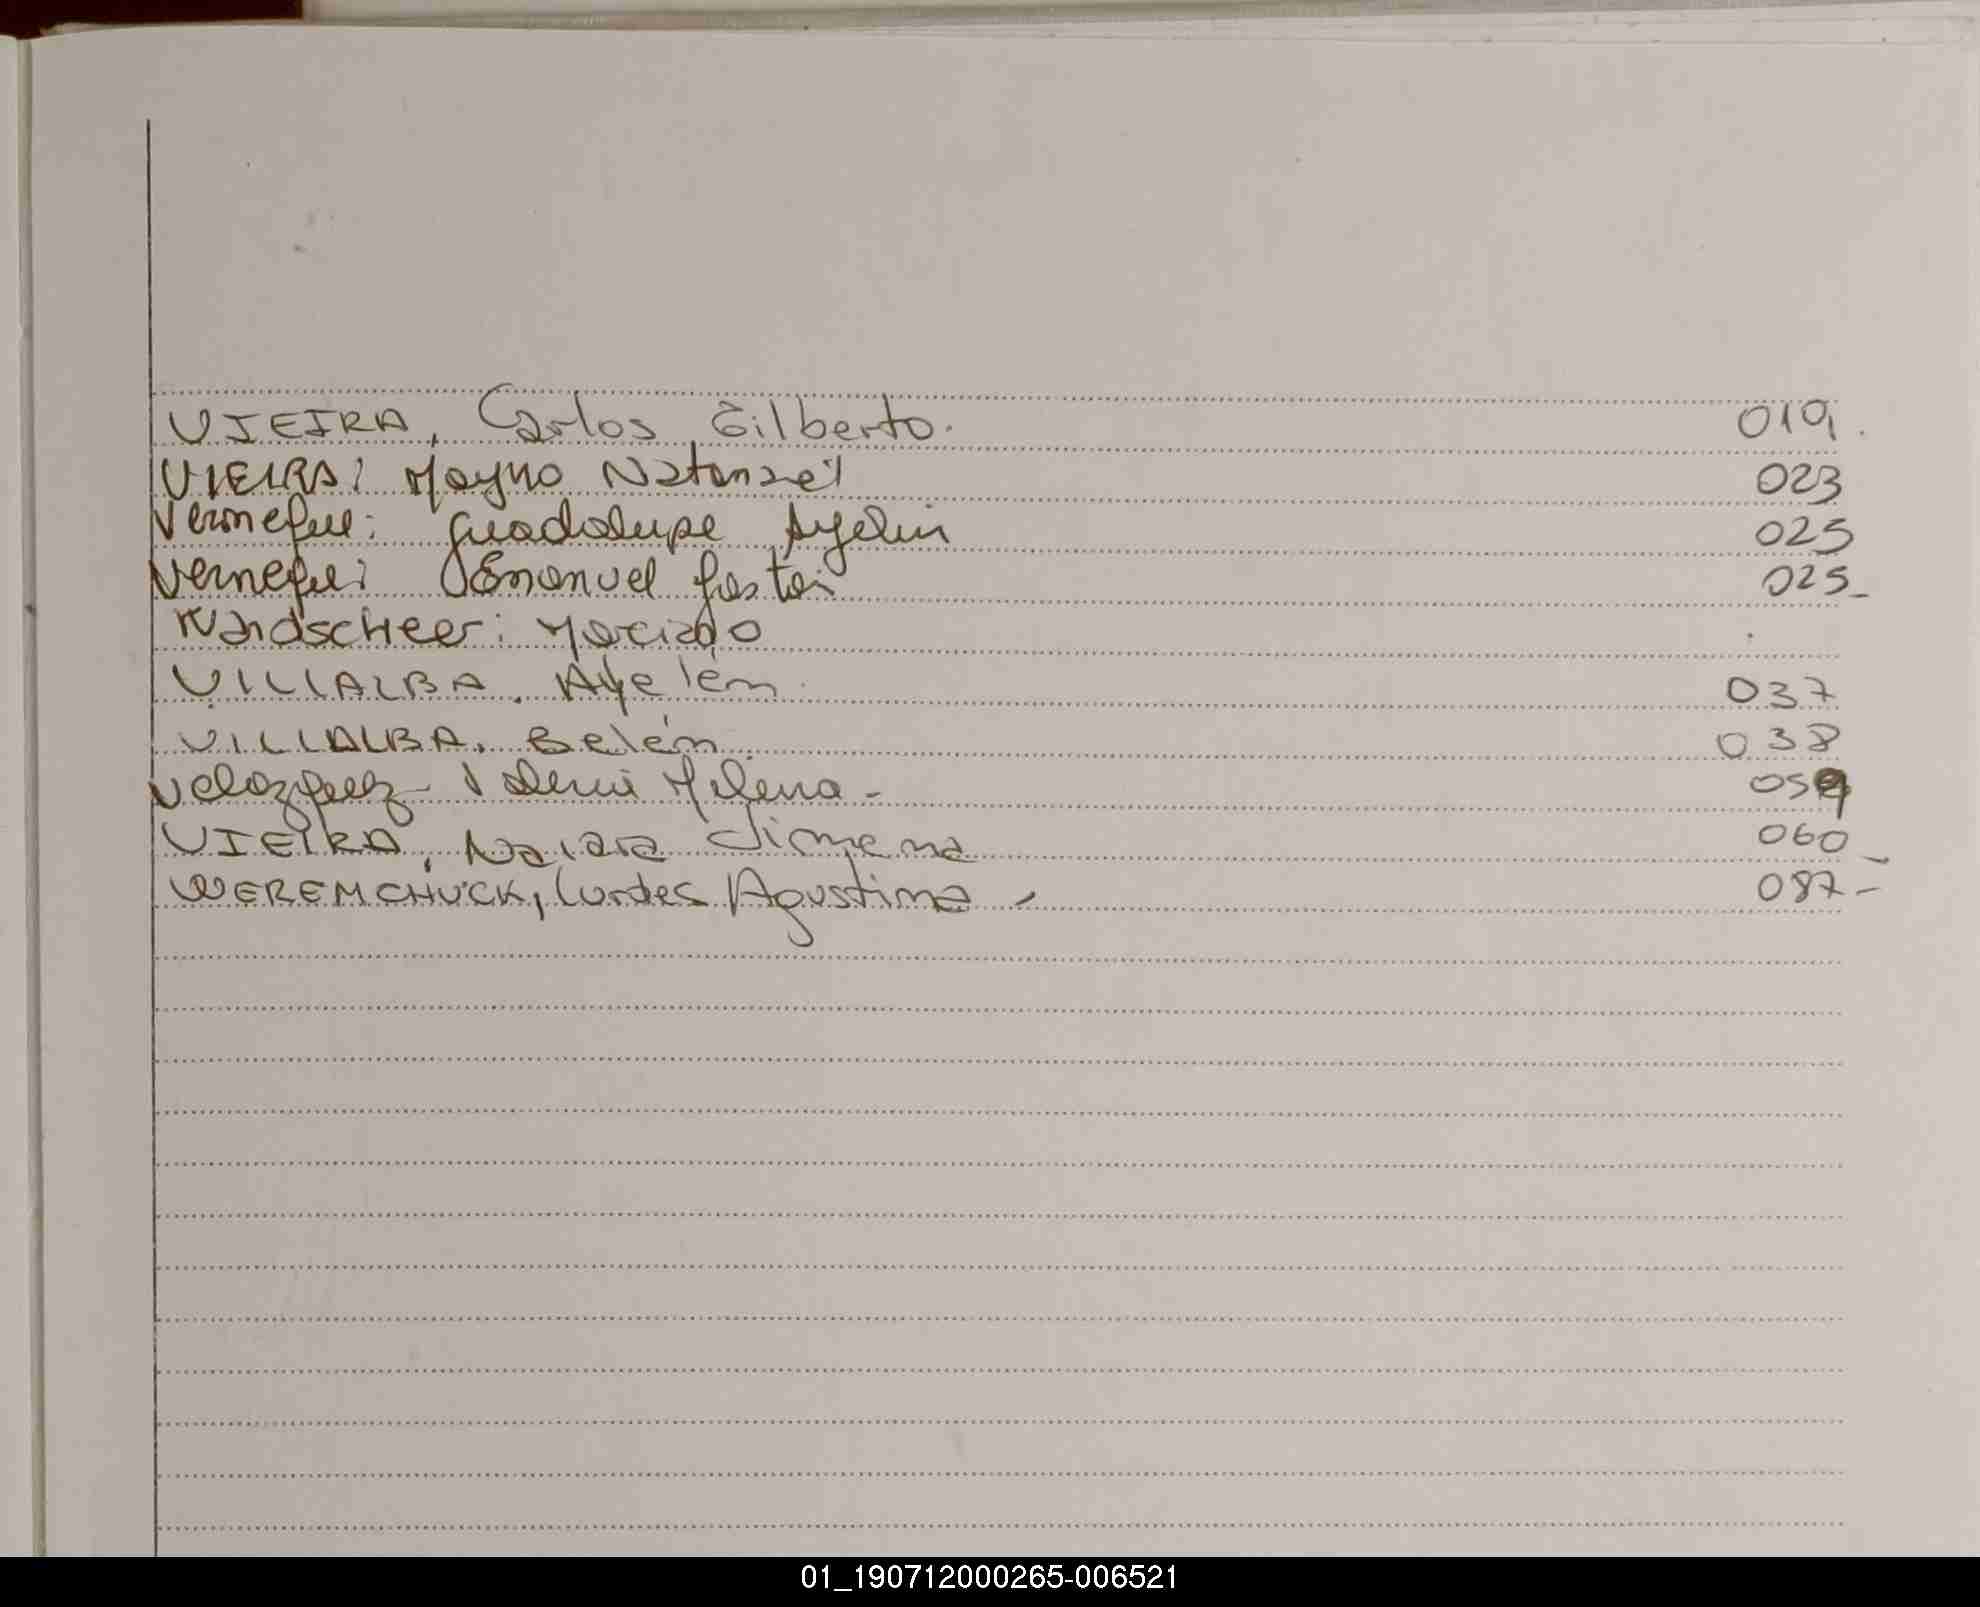 VIEIRA, Carlos Gilberto. 019.
VIEIRA: Mayko Natanael 023
Guadalupe Ayelin 025
Emanuel 025-
Wandscheer:
VILLALBA, Ayelén 037
VILLALBA, Belén 038
Velazquez Milena - 059
VIEIRA, Naiara Jimena 060-
WEREMCHUCK, Lurdes Agustina - 087-
01_190712000265-006521